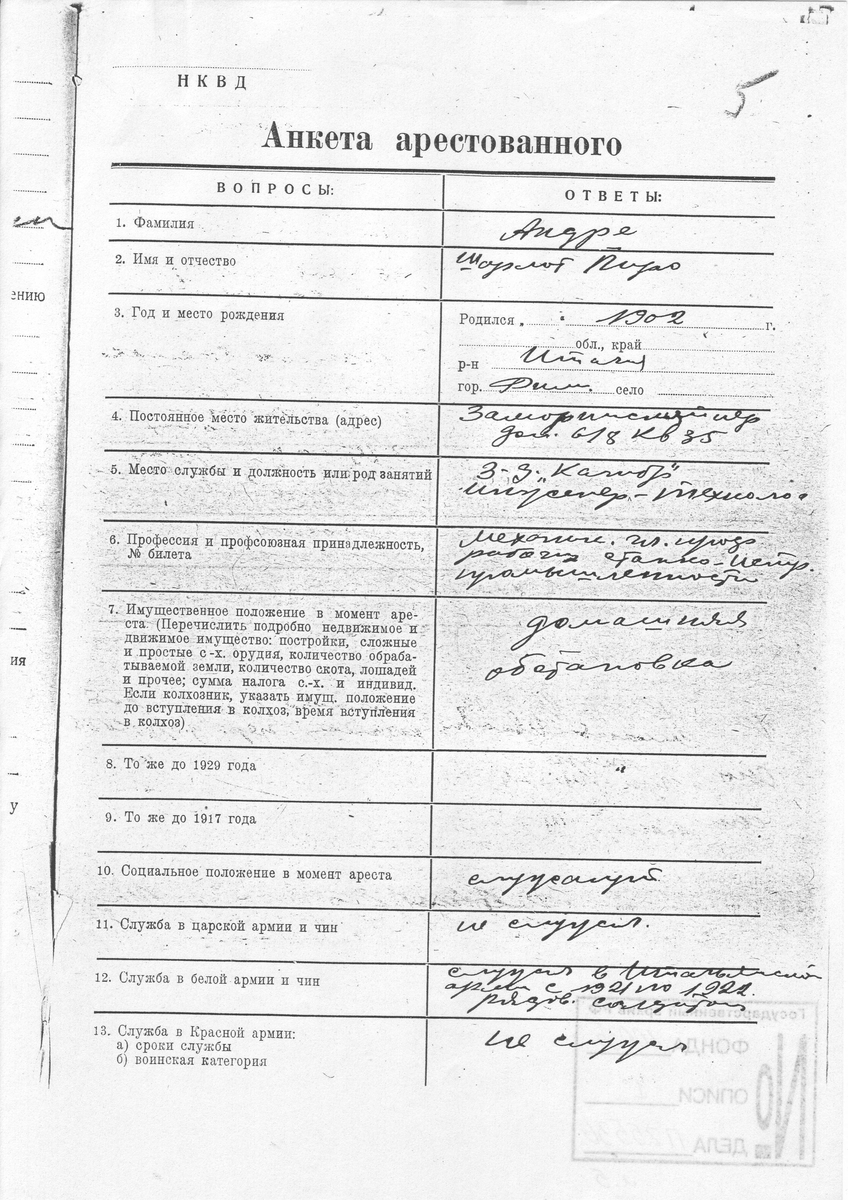 НКВД
5
Анкета арестованного
ВОПРОСЫ:
ОТВЕТЫ:
1. Фамилия
Андре
2. Имя и отчество
Шарлот
3. Год и место рождения
Родился 1902 г.
обл., край
р-н Италия
гор. село
4. Постоянное место жительства (адрес)
пер
дом. 6/8 кв 35
5. Место службы и должность или род занятий
З-д. "Калибр"
инженер-технолог
6. Профессия и профсоюзная принадлежность, № билета
механик.
рабочих станко-
промышленности
7. Имущественное положение в момент аре-
ста. (Перечислить подробно недвижимое и
движимое имущество: постройки, сложные
и простые с.-х. орудия, количество обраба-
тываемой земли, количество скота, лошадей
и прочее; сумма налога с.-х. и индивид.
Если колхозник, указать имущ. положение
до вступления в колхоз, время вступления
в колхоз)
домашняя
обстановка
8. То же до 1929 года
"
9. То же до 1917 года
10. Социальное положение в момент ареста
служащий
11. Служба в царской армии и чин
не служил.
12. Служба в белой армии и чин
служил в Итальянской
армии с 1921 по 1922.
рядов. солдатом
13. Служба в Красной армии:
а) сроки службы
б) воинская категория
не служил
Государственный архив РФ
ФОНДА
№ ОПИСИ
ДЕЛА
ению
ия
у